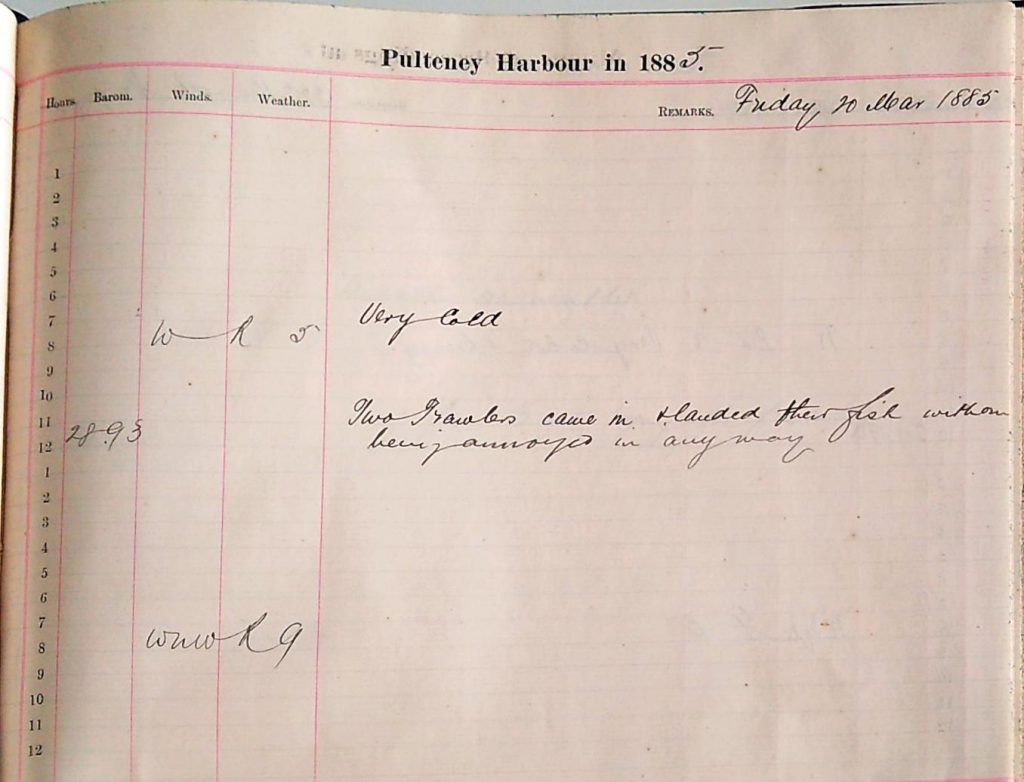 Pulteney Harbour in 1885.
Hours. Barom. Winds. Weather. REMARKS. Friday, 20 Mar 1885
1
2
3
4
5
6
7
W R 5 Very Cold
8
9
10
11
28.93 Two Trawlers came in & landed their fish withou
12 being annoyed in any way
1
2
3
4
5
6
7
WNW R 9
8
9
10
11
12